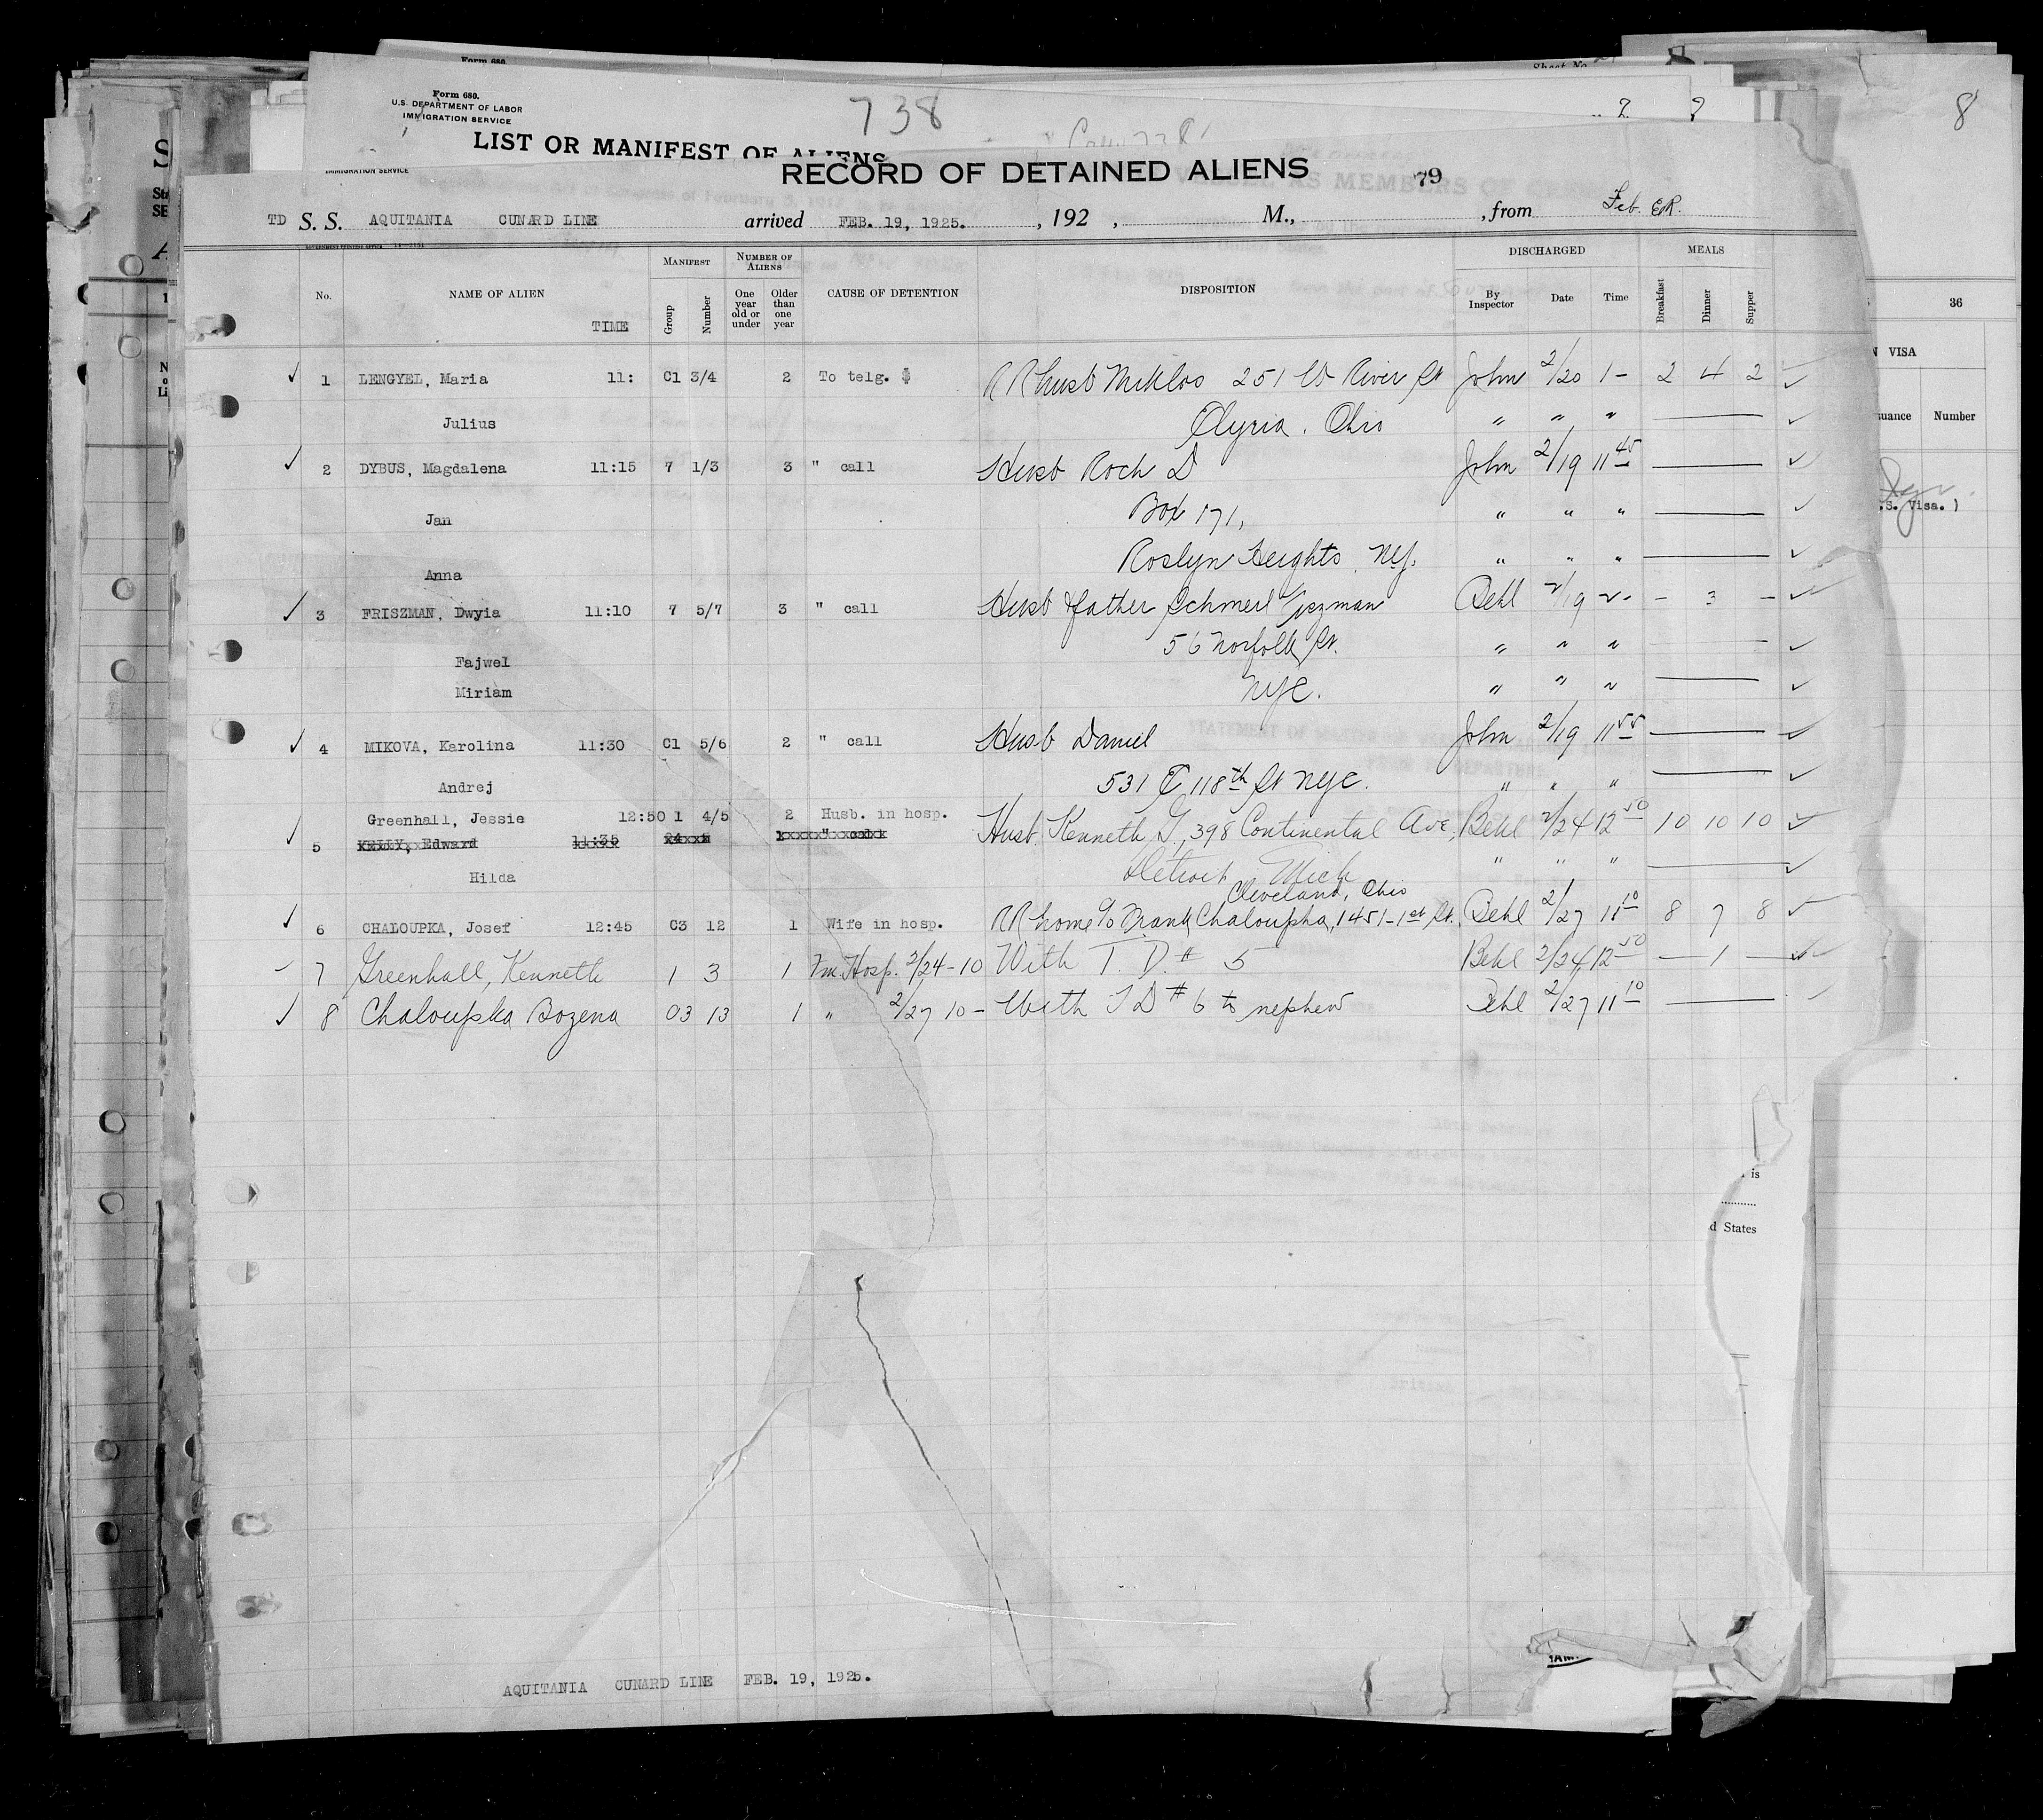 Form 680.
Sheet No.
Form 680.
U.S. DEPARTMENT OF LABOR
IMMIGRATION SERVICE
738
8
LIST OR MANIFEST OF ALIENS
IMMIGRATION SERVICE
RECORD OF DETAINED ALIENS
79
TD S. S. AQUITANIA CUNARD LINE arrived FEB. 19, 1925. , 192 , M., , from Feb. ER.
No. NAME OF ALIEN TIME MANIFEST Group Number NUMBER OF ALIENS One year old or under Older than one year CAUSE OF DETENTION DISPOSITION DISCHARGED By Inspector Date Time MEALS Breakfast Dinner Supper
36
VISA
Number
✓ 1 LENGYEL, Maria 11: C1 3/4 2 To telg. $ RR husb Miklos 251 W River St John 2/20 1- 2 4 2 ✓
Julius Elyria, Ohio " " " ✓
✓ 2 DYBUS, Magdalena 11:15 7 1/3 3 " call Husb Roch D John 2/19 11 45 ✓
Jan Box 171, " " " ✓
.S. Visa.)
Anna Roslyn Heights, NY. " " " ✓
✓ 3 FRISZMAN, Dwyia 11:10 7 5/7 3 " call Husb & father Schmerl Behl 2/19 2- - 3 - ✓
Fajwel 56 Norfolk St. " " " ✓
Miriam NYC. " " " ✓
✓ 4 MIKOVA, Karolina 11:30 C1 5/6 2 " call Husb Daniel John 2/19 11 55 ✓
Andrej 531 E 118th St NYC. " " " ✓
Greenhall, Jessie 12:50 1 4/5 2 Husb. in hosp. Husb. Kenneth G, 398 Continental Ave, Behl 2/24 12 50 10 10 10 ✓
✓ 5 KELLY, Edward 11:35 24 5 1 " call
Hilda Detroit Mich " " " ✓
Cleveland, Ohio
✓ 6 CHALOUPKA, Josef 12:45 C3 12 1 Wife in hosp. RR home c/o Frank Chaloupka, 1451-1st St. Behl 2/27 11 10 8 7 8 ✓
7 Greenhall, Kenneth 1 3 1 Fm Hosp. 2/24-10 With T. D. # 5 Behl 2/24 12 50 - 1 - ✓
✓ 8 Chaloupka Bozena 03 13 1 " 2/27 10- With T D # 6 to nephew Behl 2/27 11 10 ✓
is
d States
AQUITANIA CUNARD LINE FEB. 19, 1925.